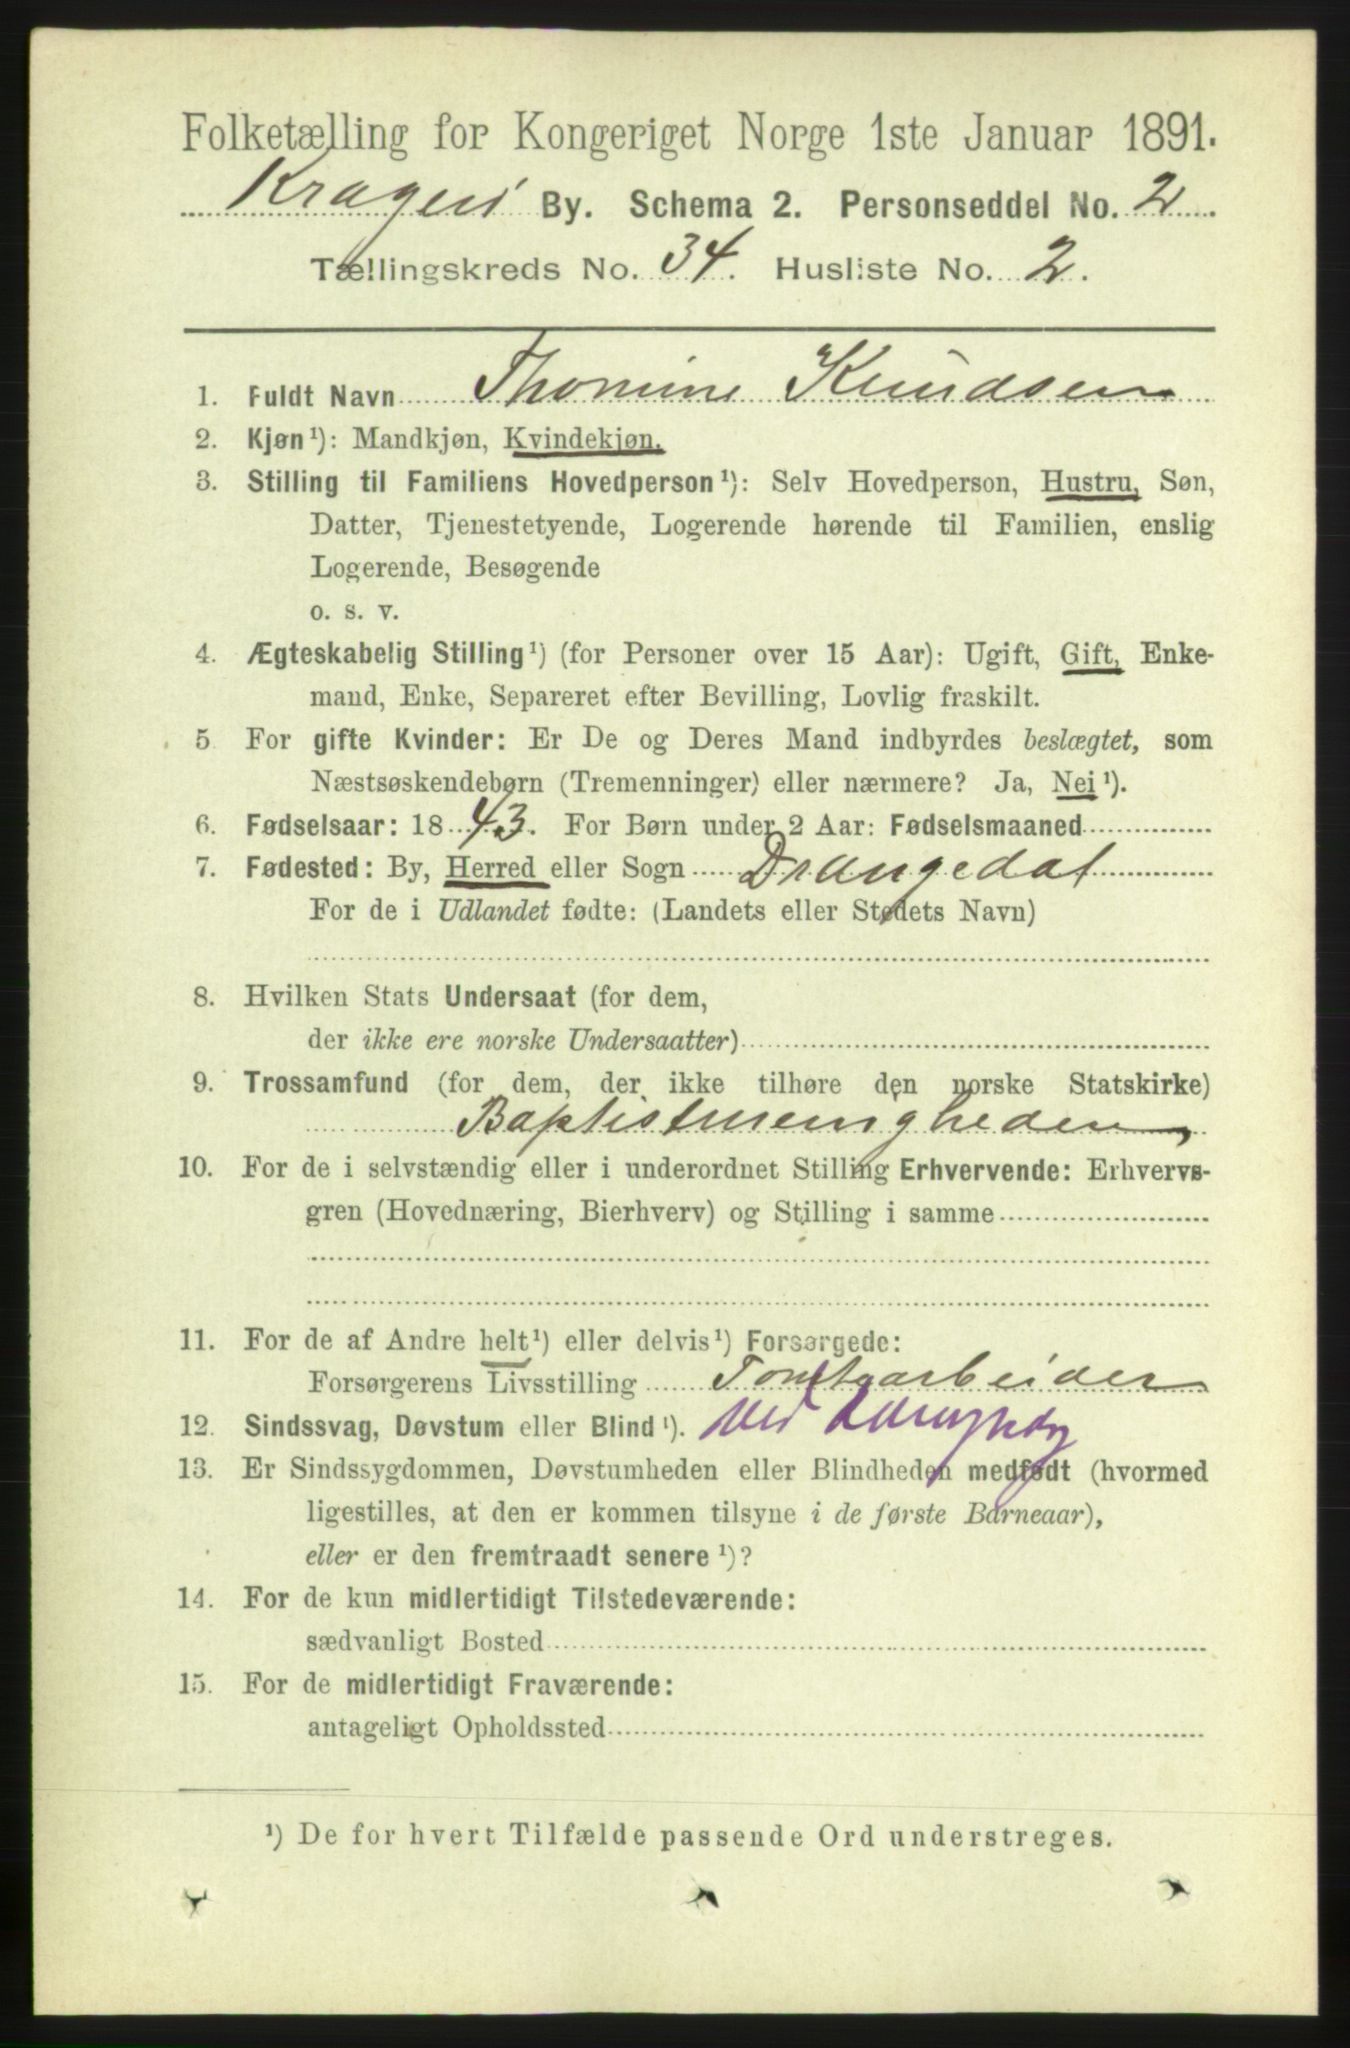 Folketælling for Kongeriget Norge 1ste Januar 1891.
Kragerö By. Schema 2. Personseddel No. 2
Tællingskreds No. 34. Husliste No. 2.
1. Fuldt Navn Thomine Knudsen
2. Kjøn¹): Mandkjøn, Kvindekjøn.
3. Stilling til Familiens Hovedperson¹): Selv Hovedperson, Hustru, Søn,
Datter, Tjenestetyende, Logerende hørende til Familien, enslig
Logerende, Besøgende
o. s. v.
4. Ægteskabelig Stilling¹) (for Personer over 15 Aar): Ugift, Gift, Enke-
mand, Enke, Separeret efter Bevilling, Lovlig fraskilt.
5 For gifte Kvinder: Er De og Deres Mand indbyrdes beslægtet, som
Næstsøskendebørn (Tremenninger) eller nærmere? Ja, Nei¹).
6. Fødselsaar: 1843. For Børn under 2 Aar: Fødselsmaaned
7. Fødested: By, Herred eller Sogn Drangedal
For de i Udlandet fødte: (Landets eller Stedets Navn)
8. Hvilken Stats Undersaat (for dem,
der ikke ere norske Undersaatter)
9. Trossamfund (for dem, der ikke tilhøre den norske Statskirke)
10. For de i selvstændig eller i underordnet Stilling Erhvervende: Erhvervs-
gren (Hovednæring, Bierhverv) og Stilling i samme
11. For de af Andre helt¹) eller delvis¹) Forsørgede:
Forsørgerens Livsstilling Tomtarbeider
12. Sindssvag, Døvstum eller Blind¹). ved
13. Er Sindssygdommen, Døvstumheden eller Blindheden medfødt (hvormed
ligestilles, at den er kommen tilsyne i de første Barneaar),
eller er den fremtraadt senere¹)?
14. For de kun midlertidigt Tilstedeværende:
sædvanligt Bosted
15. For de midlertidigt Fraværende:
antageligt Opholdssted
¹) De for hvert Tilfælde passende Ord understreges.